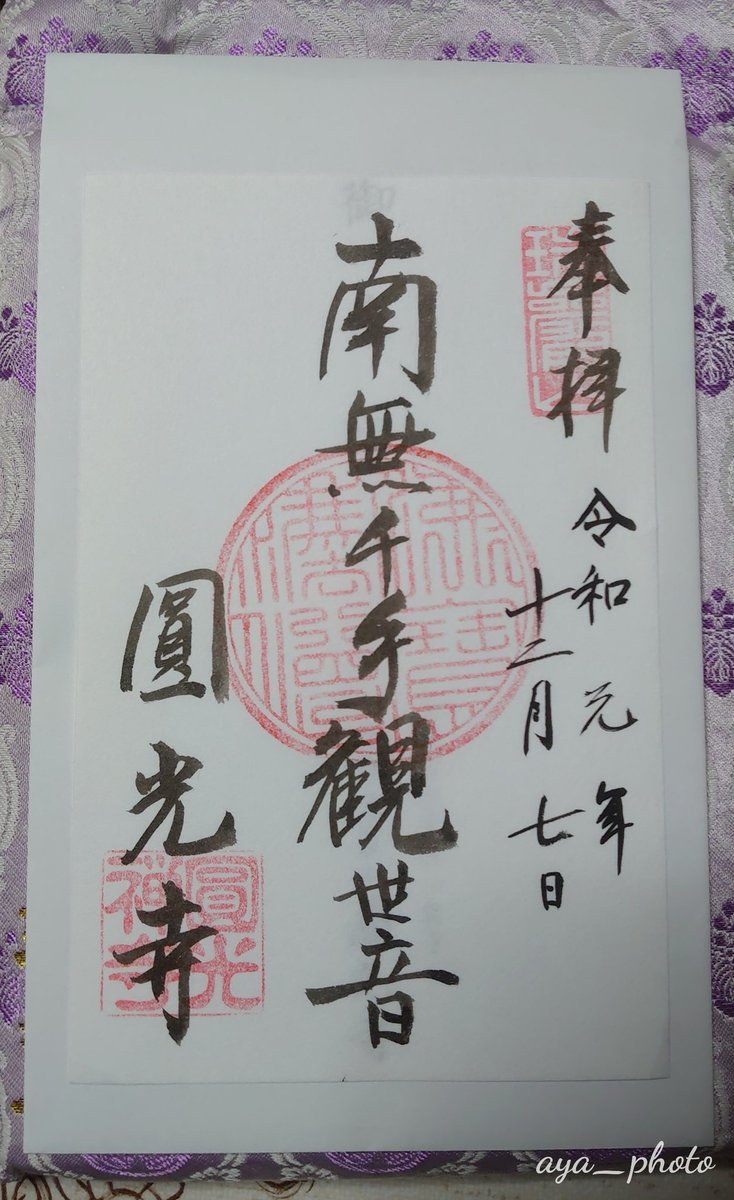 奉拝
令和元年
十二月七日
南無千手観世音
圓光寺
圓光
禅寺
御
aya_photo